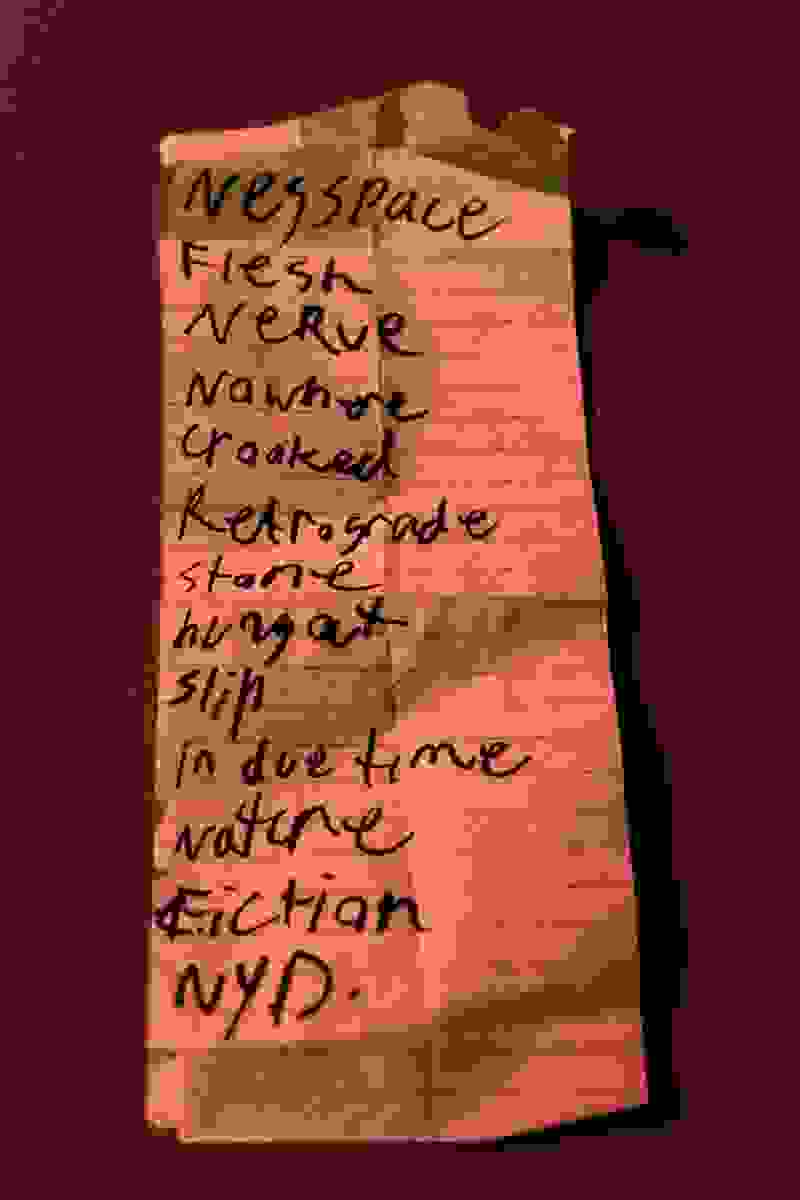 Negspace
Flesh
NeRve
Nowhere
Crooked
Retrograde
stone
slip
in due time
Nature
Fiction
NYD.